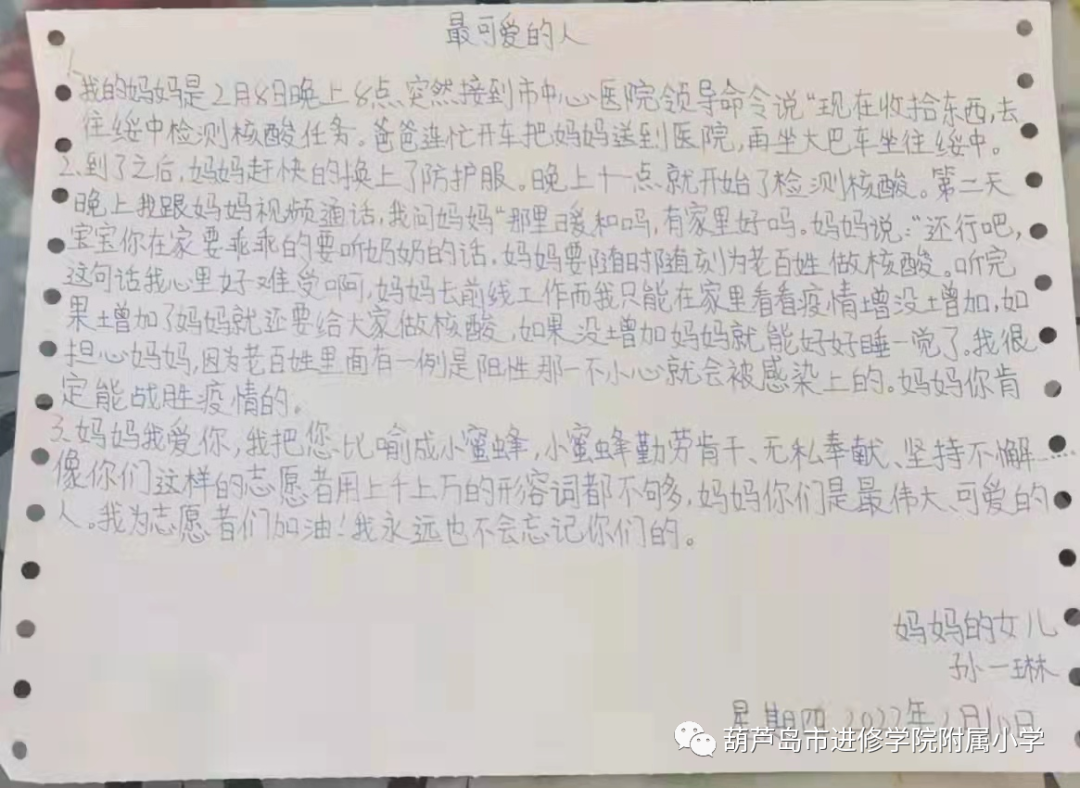 最可爱的人
1.我的妈妈是2月8日晚上8点突然接到市中心医院领导命令说“现在收拾东西,去
往绥中检测核酸任务。爸爸连忙开车把妈妈送到医院,再坐大巴车坐往绥中。
2.到了之后,妈妈赶快的换上了防护服。晚上十一点就开始了检测核酸。第二天
晚上我跟妈妈视频通话,我问妈妈“那里暖和吗,有家里好吗。妈妈说:“还行吧,
宝宝你在家要乖乖的要听奶奶的话,妈妈要随时随刻为老百姓做核酸。听完
这句话我心里好难受啊,妈妈去前线工作而我只能在家里看看疫情增没增加,如
果增加了妈妈就还要给大家做核酸,如果没增加妈妈就能好好睡一觉了。我很
担心妈妈,因为老百姓里面有一例是阳性那一不小心就会被感染上的。妈妈你肯
定能战胜疫情的。
3.妈妈我爱你,我把您比喻成小蜜蜂,小蜜蜂勤劳肯干、无私奉献、坚持不懈……
像你们这样的志愿者用上千上万的形容词都不够多,妈妈你们是最伟大、可爱的
人。我为志愿者们加油!我永远也不会忘记你们的。
妈妈的女儿
孙一琳
星期四 2022年2月10日
葫芦岛市进修学院附属小学